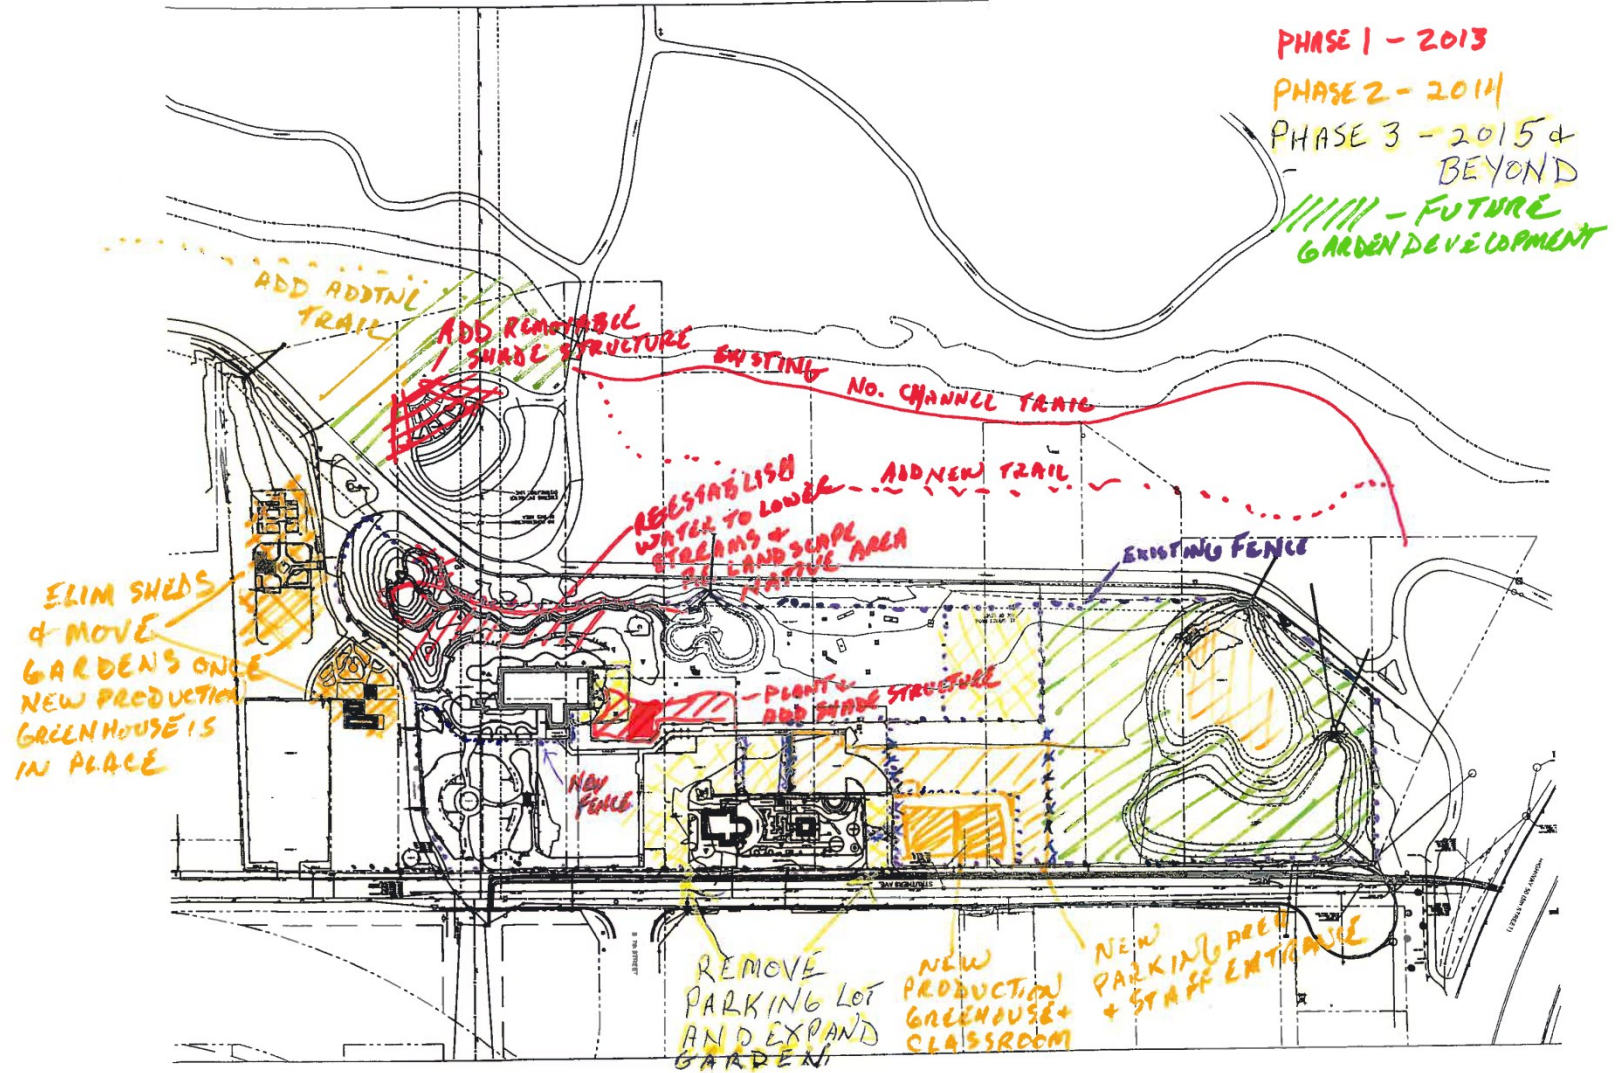 PHASE 1 - 2013
PHASE 2 - 2014
PHASE 3 - 2015 &
BEYOND
- FUTURE
GARDEN DEVELOPMENT
ADD ADDTNL
TRAIL
ADD REMOVABLE
SHADE STRUCTURE
EXISTING
NO. CHANNEL TRAIL
ADD NEW TRAIL
REESTABLISH
WATER TO LOWER
STREAMS &
RE LANDSCAPE
NATIVE AREA
EXISTING FENCE
ELIM SHEDS
& MOVE
GARDENS ONCE
NEW PRODUCTION
GREENHOUSE IS
IN PLACE
- PLANT &
ADD SHADE STRUCTURE
NEW
FENCE
STRUTHERS AVE.
S 7TH STREET
REMOVE
PARKING LOT
AND EXPAND
GARDEN
NEW
PRODUCTION
GREENHOUSE &
CLASSROOM
NEW
PARKING AREA
& STAFF ENTRANCE